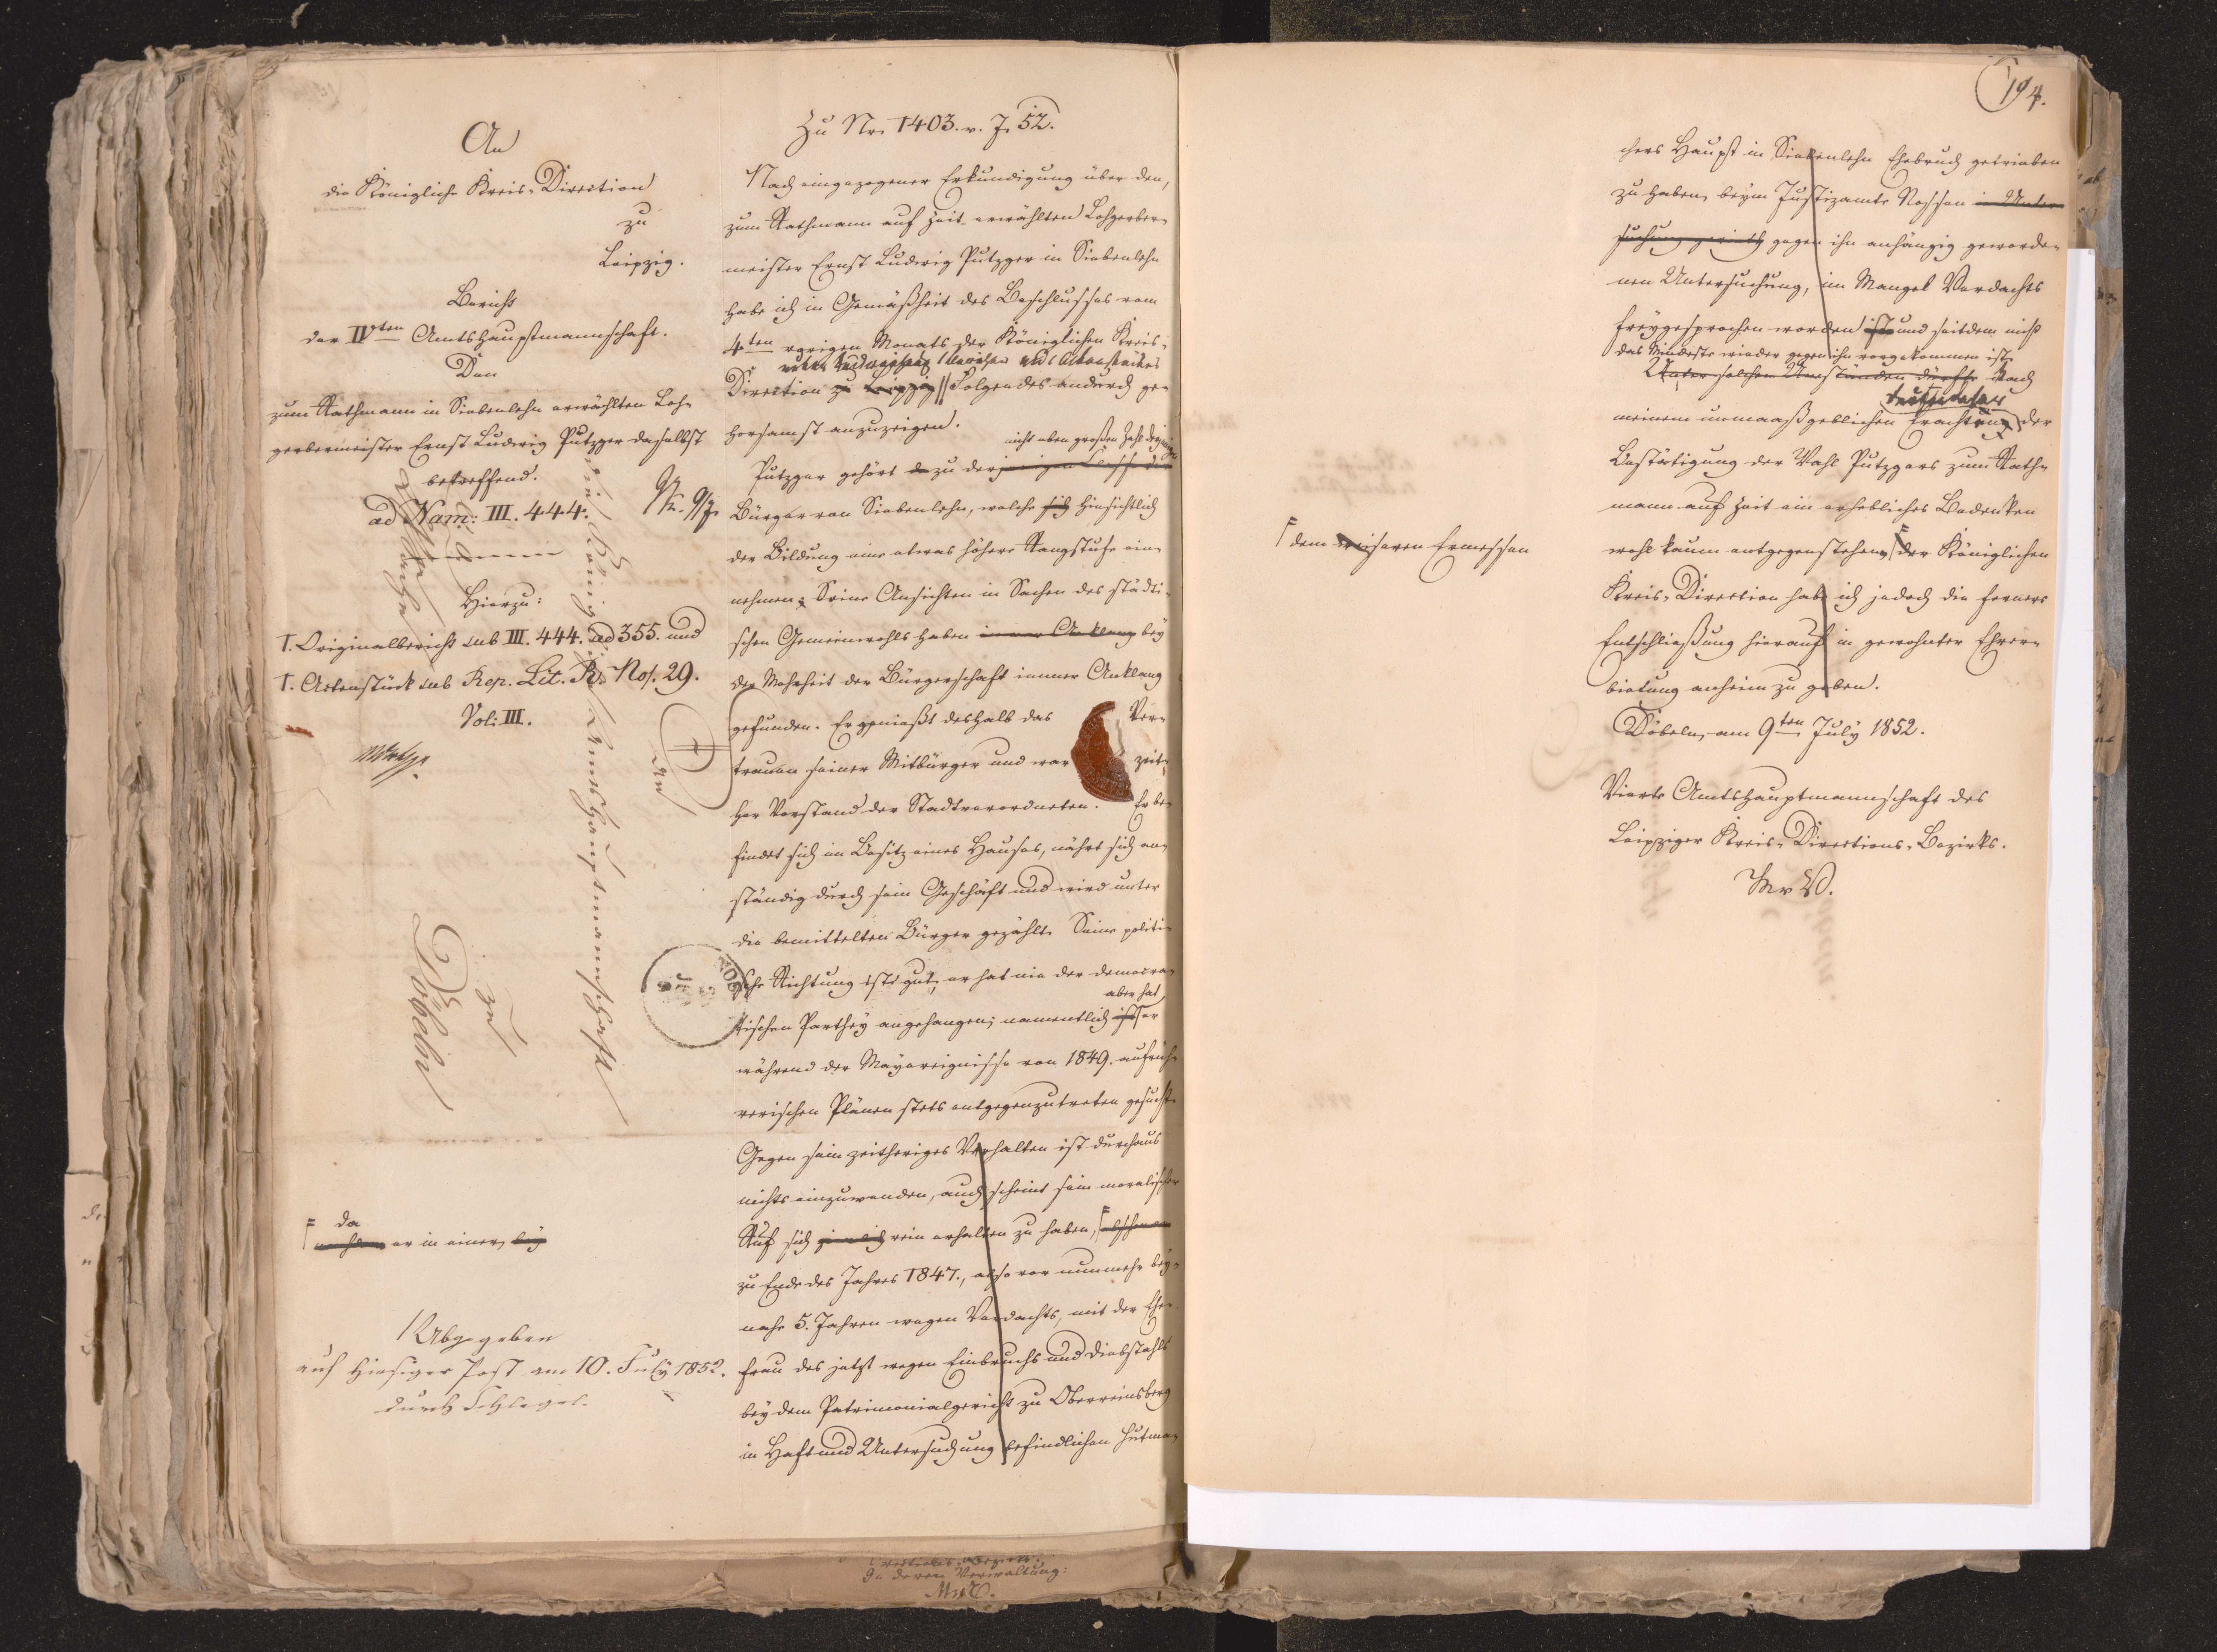 An
die Königliche Kreis-Direction
zu
Leipzig.
Bericht
der IVten Amtshauptmannschaft.
Den
zum Rathmann in Siebenlehn erwählten Loh-
gerbermeister Ernst Ludwig Putzger daselbst
betreffend.
ad Num: III. 444.
Hierzu:
1. Originalbericht sub III. 444. ad 355. und
1. Actenstück sub Rep. Lit. R. No. 29.
Vol: III.
An
die Königliche Amtshauptmannschaft
zu
Döbeln
da
er in einer bey
Abgegeben
auf hiesiger Post am 10. July 1852.
durch Schlegel.
Zu Nr. 1403. v. J. 52.
Nach eingezogener Erkundigung über den,
zum Rathmann auf Zeit erwählten Lohgerber-
meister Ernst Ludwig Putzger in Siebenlehn
habe ich in Gemäßheit des Beschlusses vom
4ten vorigen Monats der Königlichen Kreis-
Direction zu Leipzig Folgendes andurch ge-
horsamst anzuzeigen.
nicht eben großen Zahl derjenigen
Putzger gehört zu derjenigen Classe der
Bürger von Siebenlehn, welche sich hinsichtlich
der Bildung eine etwas höhere Rangstufe ein-
nehmen; Seine Ansichten in Sachen des städti-
schen Gemeinwohls haben immer Anklang bey
der Mehrheit der Bürgerschaft immer Anklang
gefunden. Er genießt deshalb das Ver-
trauen seiner Mitbürger und war zeit-
her Vorstand der Stadtverordneten. Er be-
findet sich im Besitz eines Hauses, nährt sich an-
ständig durch sein Geschäft und wird unter
die bemittelten Bürger gezählt. Seine politi-
sche Richtung ist gut, er hat nie der democra-
aber hat
tischen Parthey angehangen; namentlich ist er
während der Mayereignisse von 1849. aufrüh-
rerischen Plänen stets entgegenzutreten gesucht.
Gegen sein zeitheriges Verhalten ist durchaus
nichts einzuwenden, auch scheint sein moralischer
Ruf sich ziemlich rein erhalten zu haben, obschon er
zu Ende des Jahres 1847., also vor nunmehr bey-
nahe 5. Jahren wegen Verdachts, mit der Ehe-
frau des jetzt wegen Einbruchs und Diebstahls
bey dem Patrimonialgericht zu Oberreinsberg
in Haft und Untersuchung befindlichen Hutma-
194.
chers Haupt in Siebenlehn Ehebruch getrieben
zu haben, beym Justizamte Nossen in Unter-
suchung gerieth gegen ihn anhängig geworde-
nen Untersuchung, im Mangel Verdachts
freygesprochen worden ist und seitdem nicht
das Mindeste wieder gegen ihn vorgekommen ist.
Unter solchen Umständen dürfte Nach
meinem unmaaßgeblichen Erachten der
Bestätigung der Wahl Putzgers zum Rath-
mann auf Zeit ein erhebliches Bedenken
wohl kaum entgegenstehen, der Königlichen
dem weiseren Ermessen
Kreis-Direction habe ich jedoch die fernere
Entschließung hierauf in gewohnter Ehrer-
bietung anheim zu geben.
Döbeln, am 9ten July 1852.
Vierte Amtshauptmannschaft des
Leipziger Kreis-Directions-Bezirks.
In deren Verwaltung: